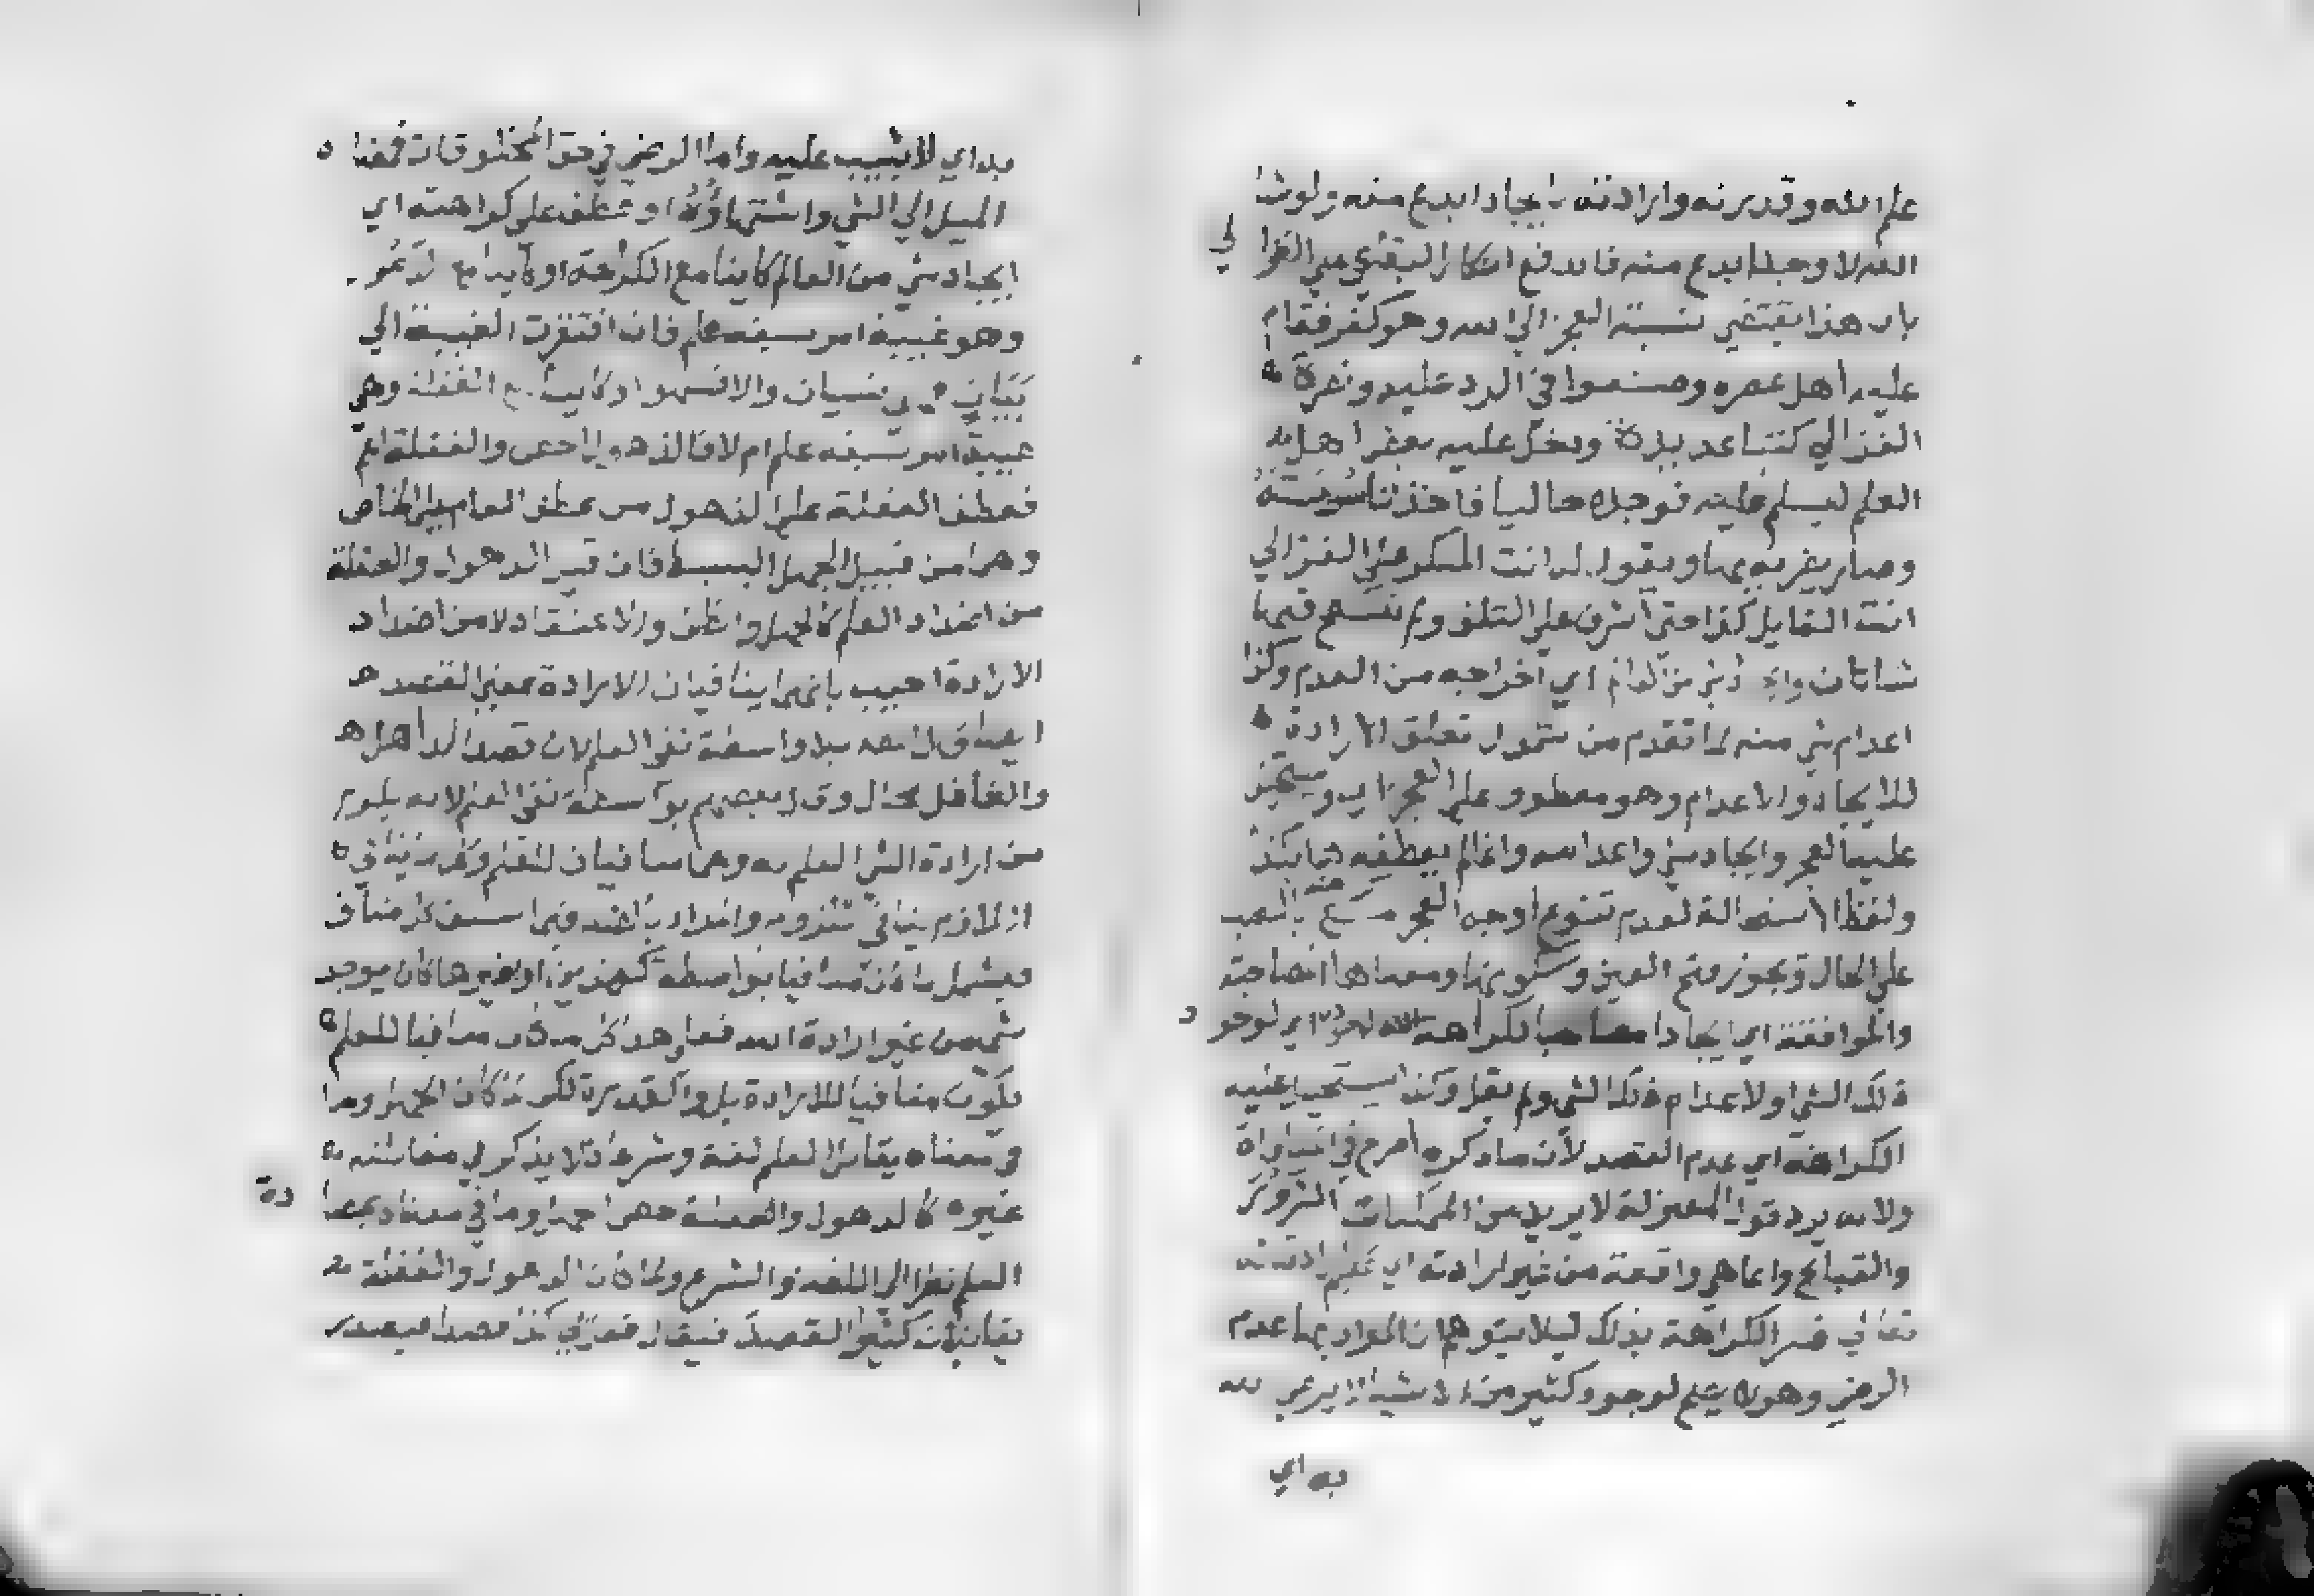 علم الله وقدرته وارادته بايجاد ابدع منه ولوشا
الله لا وجد ابدع منه فاندفع انكار البقاعي على الغزالي
بان هذا يقتضي نسبة العجز الي الله وهو كفر فقام
عليه اهل عصره وصنعوا في الرد عليه ونصرة
الغزالي كتبا عديدة ودخل عليه بعض اهل
العلم ليسلم عليه فوجده خاليا فاخذ تاسومته
وصار يضربه بها ويقول له انت المنكر علي الغزالي
انت القايل كذا حتي اشرف علي التلف ولم تنتطح فيها
شاتان وايجاد شي من العالم اي اخراجه من العدم وكذا
اعدام شي منه لما تقدم من شمول تعلق الارادة
للايجاد والاعدام وهو معطوف علي العجز اي ويستحيل
عليه العجز وايجاد شي واعدامه وانما لم يعطفه
ولفظ الاستحالة لعدم تنوع اوجه العجز مع بالنصب
علي الحال ويجوز فتح العين وسكونها ومعناها المصاحبة
والموافقة اي ايجادا مصاحبا لكراهة اي لوجود
ذلك الشي اولاعدام ذلك الشي ولم يقل وكذا يستحيل عليه
الكراهة اي عدم القصد لان ما ذكره اصرح في
ولانه يرد قول المعتزلة لا يريد من الممكنات الشرور
والقبايح وانما هي واقعة من غير ارادته اي عدم ارادته
تعالي فسر الكراهة بذلك ليلا يتوهم ان المراد بها عدم
الرضي وهو لا يصح لوجود كثير من الاشيا لا يرضي
به اي
به اي لا يثيب عليه واما الرضي في حق المخلوقات فمعناه
الميل الي الشي واشتهاؤه او عطف علي كراهته اي
ايجاد شي من العالم كاينا مع الكراهة او كاينا مع الذهول
وهو غيبة امر سبقه علم فان افتقرت الغيبة الي
نسيان والا فسهو او كاينا مع الغفلة وهي
غيبة امر سبقه علم ام لا فالذهول اخص والغفلة اعم
فعطف الغفلة علي الذهول من عطف العام علي الخاص
وهما من قبيل الجهل البسيط فان قيل الذهول والغفلة
من اضداد العلم كالجهل والظن والاعتقاد لا من اضداد
الارادة اجيب بانهما ينافيان الارادة بمعني القصد
بلا واسطة نفي العلم لان قصد الذاهل
والغافل محال وقال بعضهم بواسطة نفي العلم لانه يلزم
من ارادة الشي العلم به وهما منافيان للعلم
اللازم ينافي ملزومه واراد بالضد هنا كل مناف
فيشمل ما كان منافيا بواسطة كهذين او بغيرها كان يوجد
شي من غير ارادة الله فعلي هذا كل ما كان منافيا للعلم
يكون منافيا للارادة بل والقدرة لكن لما كان الجهل وما
في معناه يقابل العلم لغة وشرعا ولا يذكر في مقابلته
غيره كالذهول والغفلة خص الجهل وما في معناه بمضادة
العلم نظرا الي اللغة والشرع ولما كان الذهول والغفلة
يقابلان كثيرا القصد فيقال فعلت كذا قصدا